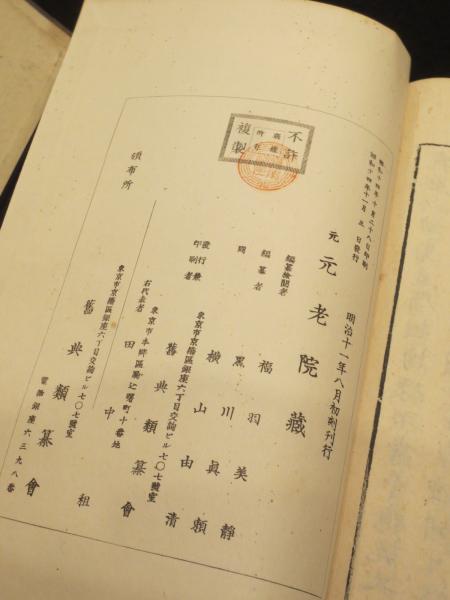 昭和十四年十月二十八日印刷
昭和十四年十一月五日發行
明治十一年八月初刻刊行
元元老院藏
編纂檢閲者
福羽美靜
編纂者
黒川眞頼
同
横山由清
發行兼
印刷者
東京市京橋區銀座六丁目交詢ビル七〇七號室
舊典類纂會
右代表者
東京市本郷區駒込曙町十番地
田中
頒布所
東京市京橋區銀座六丁目交詢ビル七〇七號室
舊典類纂會
電話銀座六三九八番
不許
複製